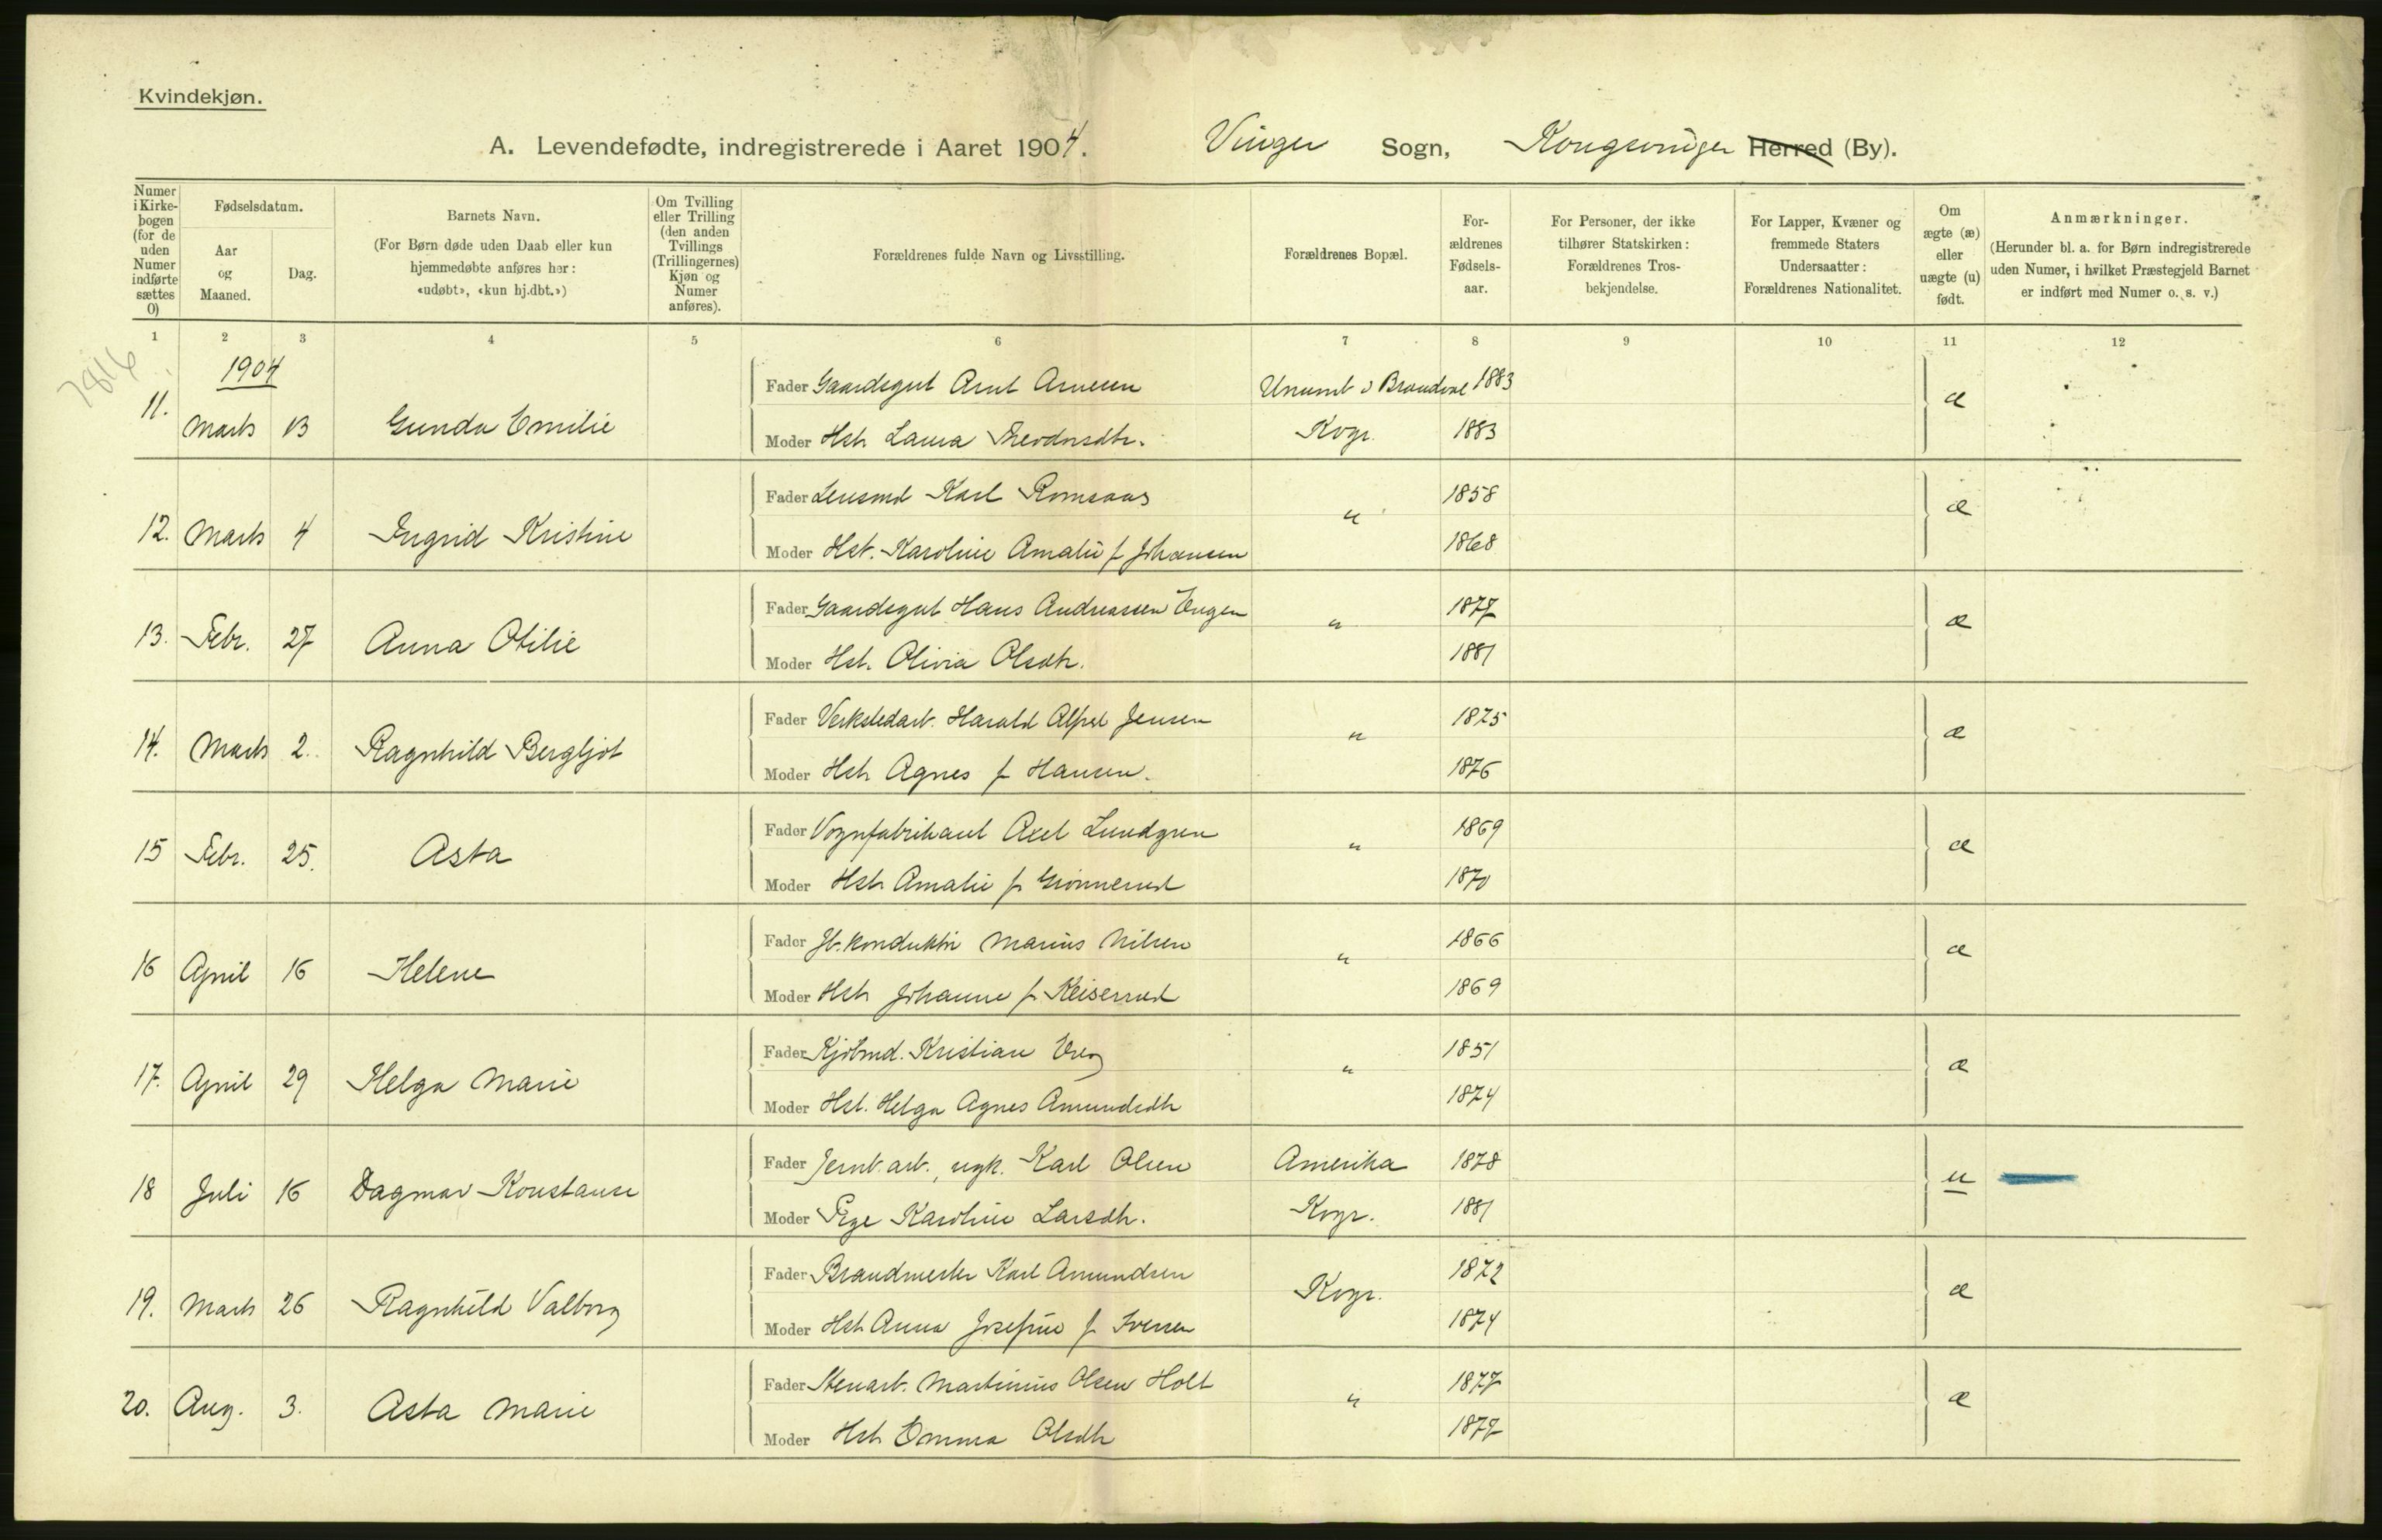 Kvindekjøn.
A. Levendefødte, indregistrerede i Aaret 1904. Vinger Sogn, Kongsvinger Herred (By).
Numer i Kirkebogen (for de uden Numer indførte sættes 0)
Fødselsdatum.
Aar og Maaned.
Dag.
Barnets Navn.
(For Børn døde uden Daab eller kun hjemmedøbte anføres her: «udøbt», «kun hj.dbt.»)
Om Tvilling eller Trilling (den anden Tvillings (Trillingernes) Kjøn og Numer anføres).
Forældrenes fulde Navn og Livsstilling.
Forældrenes Bopæl.
Forældrenes Fødselsaar.
For Personer, der ikke tilhører Statskirken: Forældrenes Trosbekjendelse.
For Lapper, Kvæner og fremmede Staters Undersaatter: Forældrenes Nationalitet.
Om ægte (æ) eller uægte (u) født.
Anmærkninger.
(Herunder bl. a. for Børn indregistrerede uden Numer, i hvilket Præstegjeld Barnet er indført med Numer o. s. v.)
1 2 3 4 5 6 7 8 9 10 11 12
1904
Fader Gaardsgut Arnt Arnesen Brandval 1883
11. Marts 13 Gunda Emilie æ
Moder Hst. Laura Kvgr. 1883
Fader Lensmd Karl Romsaas 1858
12. Marts 4 Ingrid Kristine " æ
Moder Hst. Karoline Amalie f Johansen 1868
Fader Gaardsgut Hans Andreassen Engen 1877
13. Febr. 27 Anna Otilie " æ
Moder Hst. Olivia Olsdtr. 1881
Fader Verkstedarb. Harald Alfred Jensen 1875
14. Marts 2. Ragnhild Bergljot " æ
Moder Hst. Agnes f Hansen. 1876
Fader Vognfabrikant Axel Lundgren 1869
15 Febr. 25. Asta " æ
Moder Hst. Amalie f Grønnerud 1870
Fader Jb.konduktør Marius Nilsen 1866
16 April 16 Helene " æ
Moder Hst. Johanne f Keiserud 1869
Fader Kjøbmd. Kristian 1851
17. April 29 Helga Marie " æ
Moder Hst. Helga Agnes Amundsdtr 1874
Fader Jernb.arb., ugk. Karl Olsen Amerika 1878
18 Juli 16 Dagmar Konstanse u
Moder Pige Karoline Larsdtr. Kvgr. 1881
Fader Brandmester Karl Amundsen 1872
19. Marts 26 Ragnhild Valborg Kvgr. æ
Moder Hst. Anna Josefine f Iversen 1874
Fader Stenarb. Martinius Olsen Holt 1877
20. Aug. 3. Asta Marie " æ
Moder Hst. Emma Olsdtr 1877